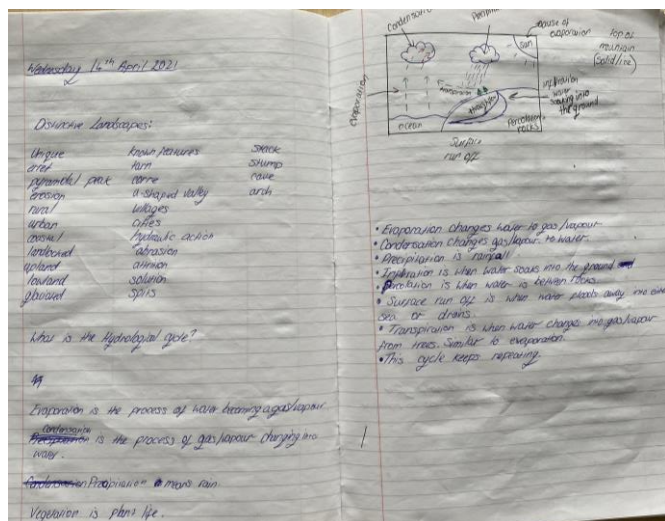 Wednesday 14th April 2021
Distinctive Landscapes:
Unique
arret
pyramidal peak
erosion
rural
urban
coastal
landlocked
upland
lowland
glaciated
known features
tarn
corrie
u-shaped valley
villages
cities
hydraulic action
abrasion
attrition
solution
spits
stack
stump
cave
arch
What is the Hydrological cycle?
Evaporation is the process of water becoming a gas/vapour
Condensation
is the process of gas/vapour changing into
water.
Precipitation means rain.
Vegetation is plant life.
Condensation
cause of
evaporation
sun
top of
mountain
(solid line)
evaporation
transpiration
infiltration
water
soaking into
the ground
ocean
Percolation
rocks
Surface
run off
• Evaporation changes water to gas/vapour.
• Condensation changes gas/vapour to water.
• Precipitation is rainfall.
• Infiltration is when water soaks into the ground
• Percolation is when water is between rocks.
• Surface run off is when water floods away into
sea or drains.
• Transpiration is when water changes into gas/vapour
from trees. Similar to evaporation.
• This cycle keeps repeating.